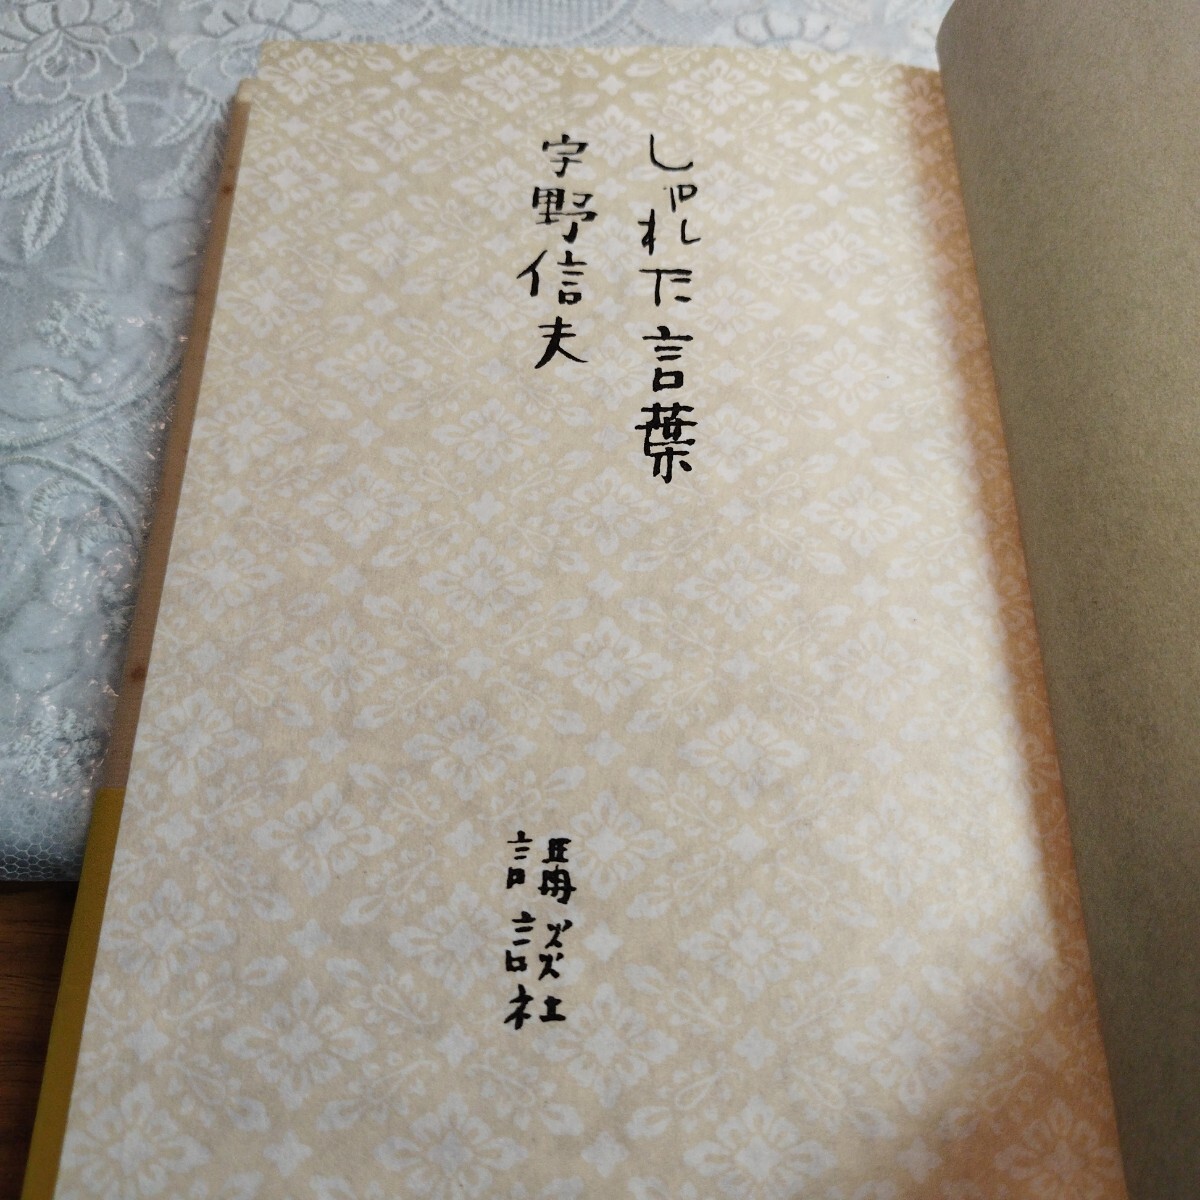 しゃれた言葉
宇野信夫
講談社